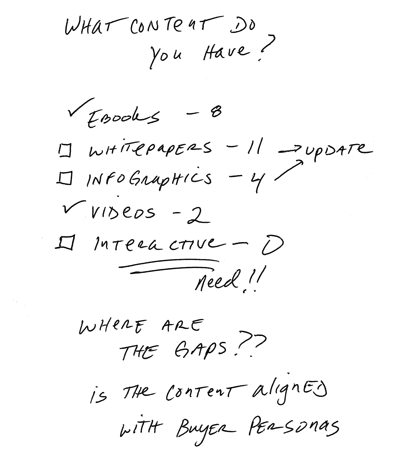 WHAT CONTENT DO
You Have?
✓ EBOOKS - 8
□ WHITEPAPERS - 11 → UPDATE
□ INFOGRAPHICS - 4
✓ VIDEOS - 2
□ INTERACTIVE - 0
Need!!
WHERE ARE
THE GAPS??
is THE CONTENT aligned
WITH BUYER PERSONAS